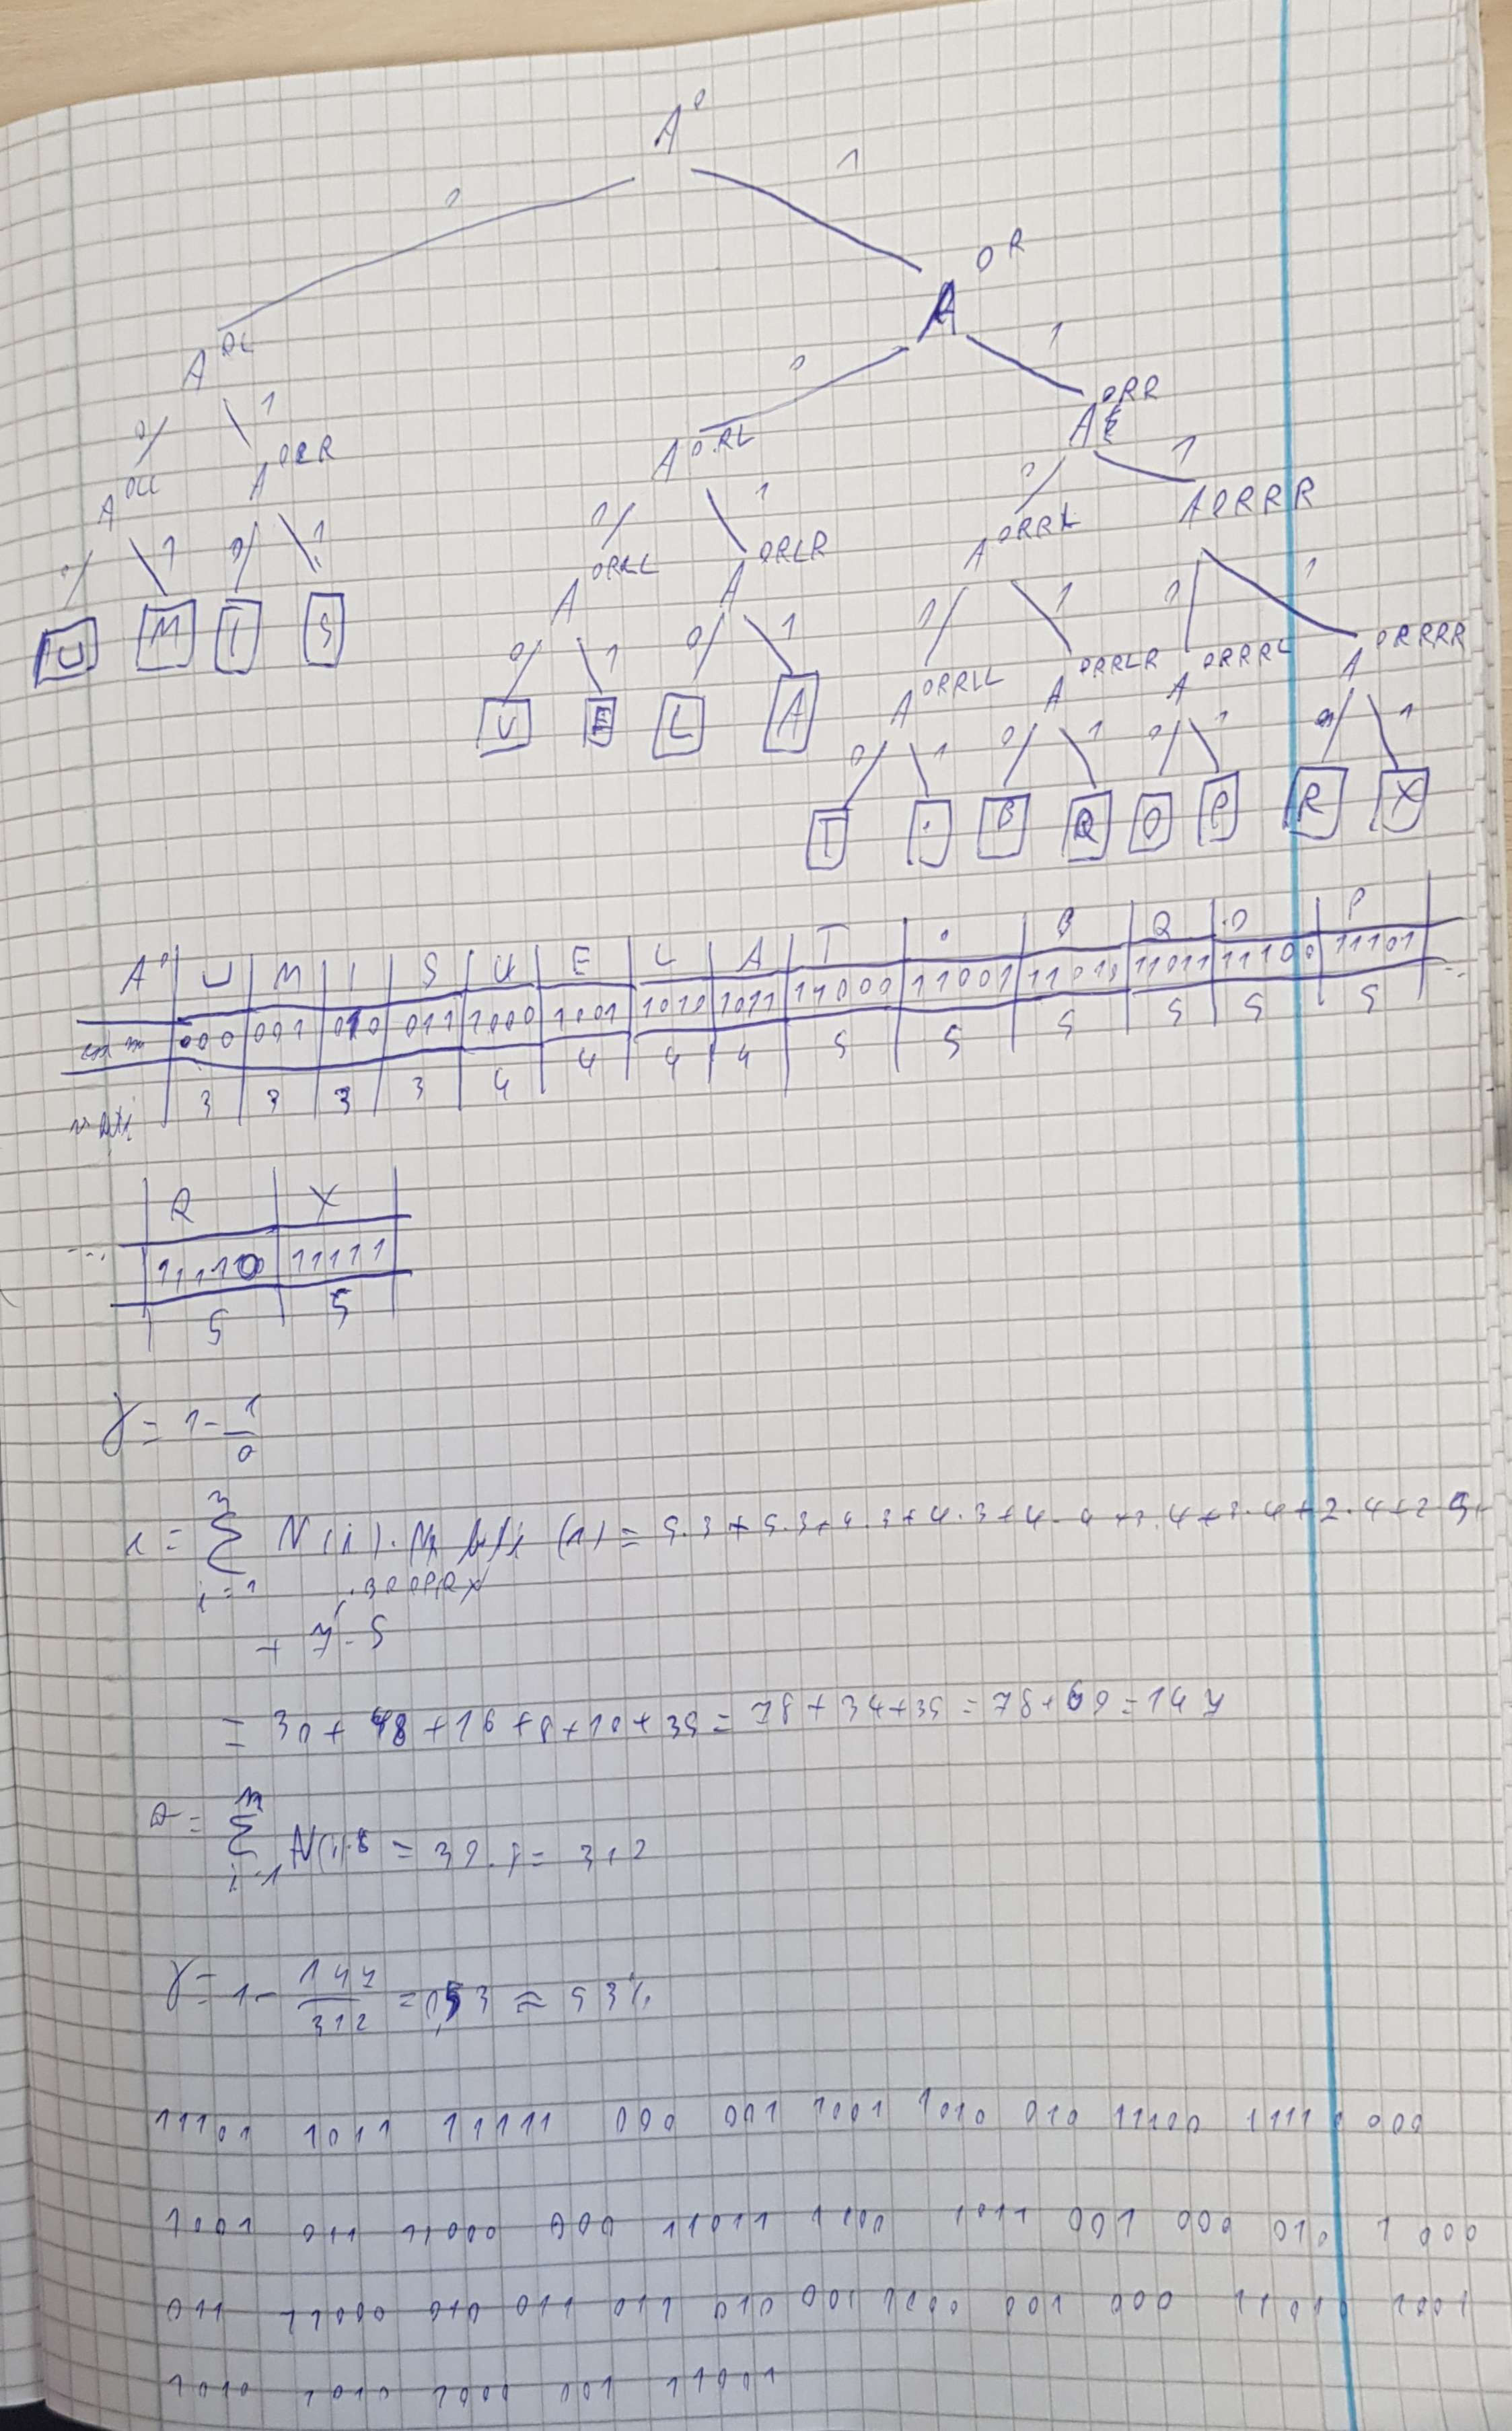 A⁰
0 1
A⁰ᴿ
0 1
A⁰ᴸ A⁰ᴿᴿ
0 1 A⁰ᴿᴸ 0 1
A⁰ᴸᴸ A⁰ᴸᴿ 0 1 A⁰ᴿᴿᴸ A⁰ᴿᴿᴿ
0 1 0 1 A⁰ᴿᴸᴸ A⁰ᴿᴸᴿ 0 1 1 1
⊔ M I S 0 1 0 1 A⁰ᴿᴿᴸᴸ A⁰ᴿᴿᴸᴿ A⁰ᴿᴿᴿᴸ A⁰ᴿᴿᴿᴿ
U E L A 0 1 0 1 0 1 0 1
T . B Q O P R X
A⁰ ⊔ M I S U E L A T . B Q O P
000 001 010 011 1000 1001 1010 1011 11000 11001 11010 11011 11100 11101 ...
3 3 3 3 4 4 4 4 5 5 5 5 5 5
R X
... 11110 11111
5 5
γ = 1 - 1/0
= 30 + 48 + 16 + 8 + 10 + 35 = 78 + 34 + 35 = 78 + 69 = 147
Σ N(i)·8 = 39·8 = 312
γ = 1 - 147/312 = 0,53 ≈ 53%
11101 1011 11111 000 001 1001 1010 010 11100 11110 000
1001 011 11000 000 11011 1000 1011 001 000 010 1000
011 11000 010 011 011 010 001 1000 001 000 11010 1001
1010 1010 1000 001 11001